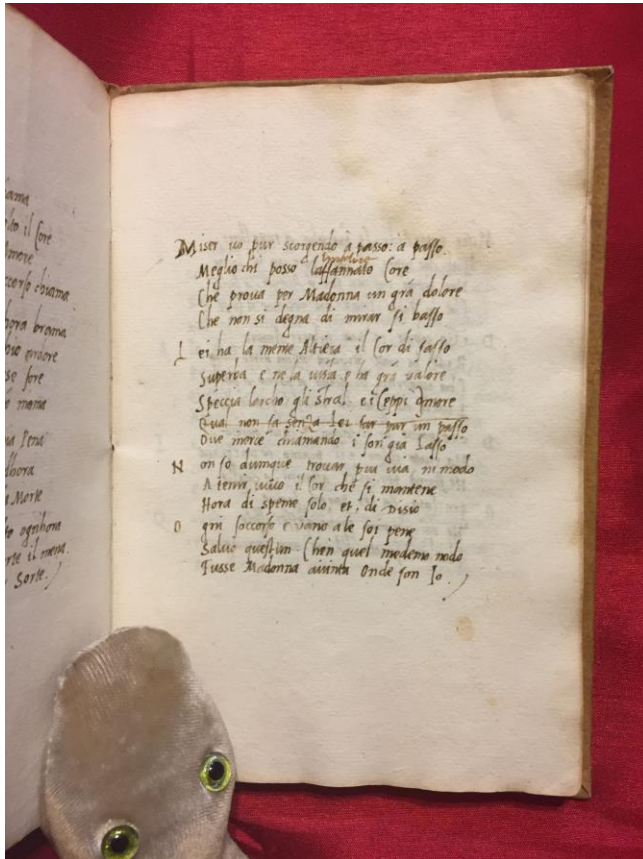 hama
il Core
Amore
ccorso chiama
hora brama
ardore
se fore
mama
Pena
Alhora
Morte
ognihora
rte il mena.
Sorte.
Miser uo pur scorgendo à passo: a passo
Meglio chi posso laffannato Core
Che proua per Madonna un grã dolore
Che non si degna di mirar si basso
Lei ha la mente Altiera il Cor di sasso
Superba e ne la uista e ha grã valore
Speccia larcho gli Stral. e i Ceppi Amore
Qual non sa senza Lei far pur un passo
Oue merce chiamando i son gia Lasso
Non so dunque trouar piu uia, ni modo
A tenir uiuo il Cor che si mantene
Hora di speme solo, et, di Disio
Ogni soccorso e uano a le soi pene
Saluo questun Chen quel medemo nodo
Fusse Madonna auinta Onde son Io.